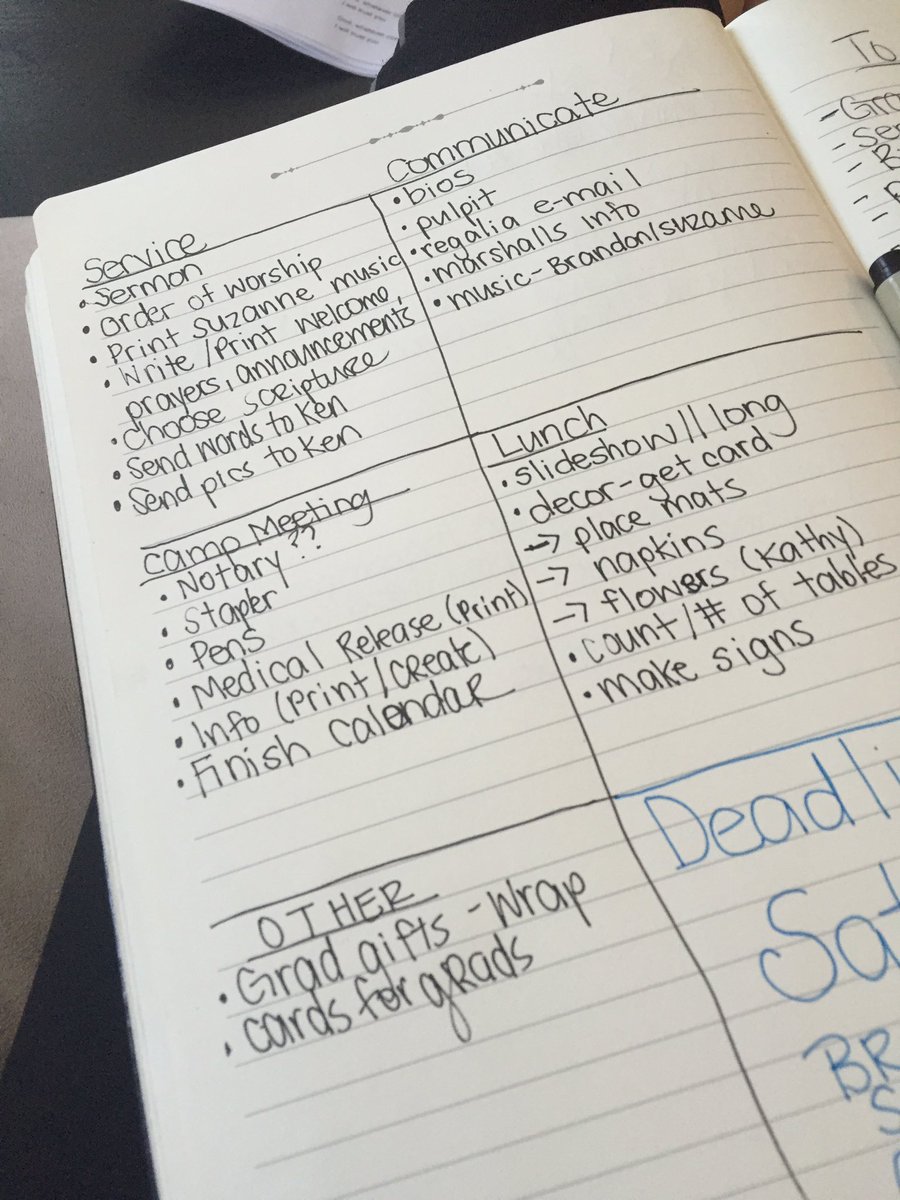 Service
• Sermon
• Order of worship
• Print Suzanne music
• Write/Print welcome,
prayers, announcements
• Choose scripture
• Send words to Ken
• Send pics to Ken
Communicate
• bios
• pulpit
• regalia e-mail
• marshalls info
• music-Brandon/Suzanne
Camp Meeting
• Notary??
• Stapler
• Pens
• Medical Release (Print)
• Info (Print/Create)
• Finish Calendar
Lunch
• slideshow//long
• decor-get card
→ place mats
→ napkins
→ flowers (Kathy)
• count/# of tables
• make signs
OTHER
• Grad gifts - Wrap
• cards for grads
Deadli
Sat
BR
S
To
- Gra
- Se